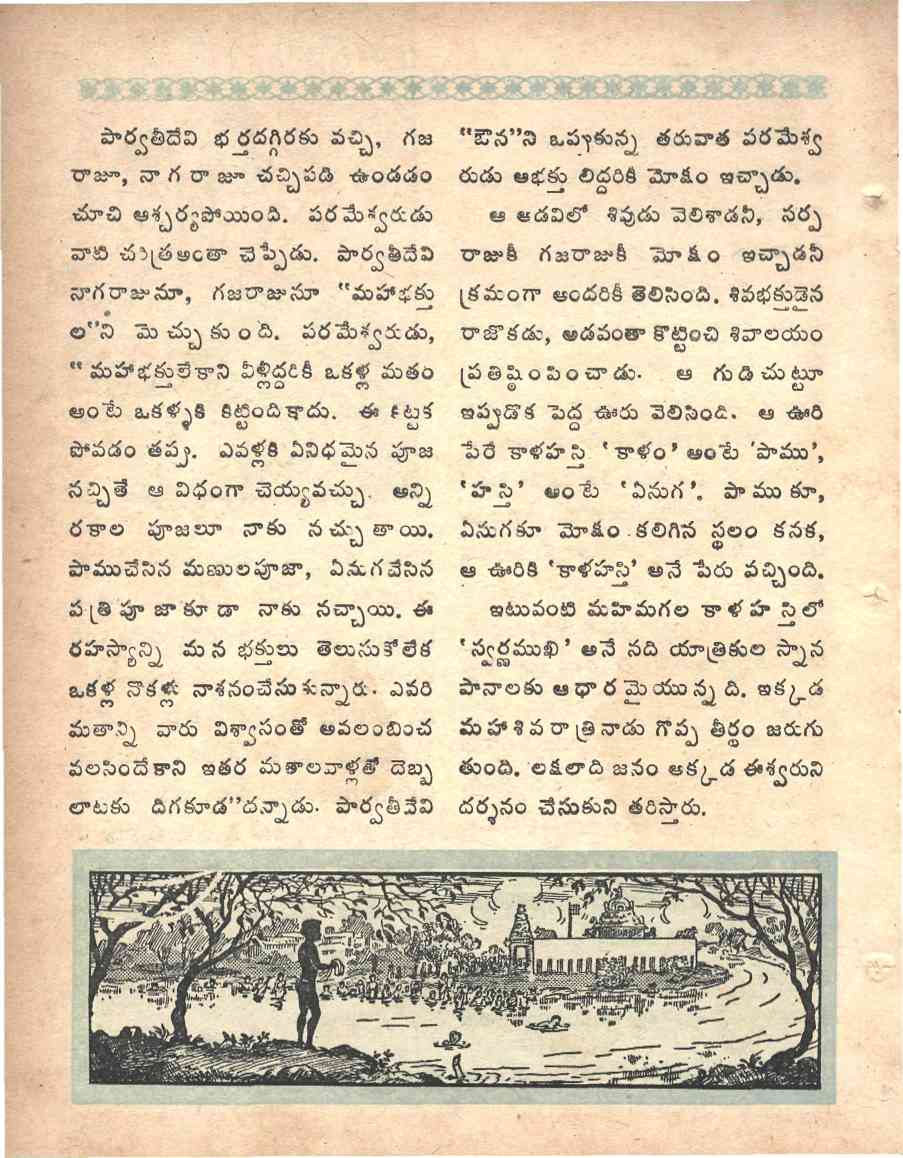 పార్వతీదేవి భర్తదగ్గిరకు వచ్చి, గజ
రాజూ, నాగరాజూ చచ్చిపడి ఉండడం
చూచి ఆశ్చర్యపోయింది. పరమేశ్వరుడు
వాటి చరిత్రఅంతా చెప్పేడు. పార్వతీదేవి
నాగరాజునూ, గజరాజునూ “మహాభక్తు
ల”ని మెచ్చుకుంది. పరమేశ్వరుడు,
“మహాభక్తులేకాని వీళ్లిద్దరికీ ఒకళ్ల మతం
అంటే ఒకళ్ళకి కిట్టిందికాదు. ఈ కిట్టక
పోవడం తప్పు. ఎవళ్లకి ఏవిధమైన పూజ
నచ్చితే ఆ విధంగా చెయ్యవచ్చు. అన్ని
రకాల పూజలూ నాకు నచ్చుతాయి.
పాముచేసిన మణులపూజా, ఏనుగచేసిన
పత్రిపూజాకూడా నాకు నచ్చాయి. ఈ
రహస్యాన్ని మన భక్తులు తెలుసుకోలేక
ఒకళ్ల నొకళ్లు నాశనంచేసుకున్నారు. ఎవరి
మతాన్ని వారు విశ్వాసంతో అవలంబించ
వలసిందేకాని ఇతర మతాలవాళ్లతో దెబ్బ
లాటకు దిగకూడ”దన్నాడు. పార్వతీదేవి
“ఔన”ని ఒప్పుకున్న తరువాత పరమేశ్వ
రుడు ఆభక్తు లిద్దరికీ మోక్షం ఇచ్చాడు.
ఆ అడవిలో శివుడు వెలిశాడనీ, సర్ప
రాజుకీ గజరాజుకీ మోక్షం ఇచ్చాడనీ
క్రమంగా అందరికీ తెలిసింది. శివభక్తుడైన
రాజొకడు, అడవంతా కొట్టించి శివాలయం
ప్రతిష్ఠింపించాడు. ఆ గుడిచుట్టూ
ఇప్పుడొక పెద్ద ఊరు వెలిసింది. ఆ ఊరి
పేరే కాళహస్తి ‘కాళం’ అంటే ‘పాము’,
‘హస్తి’ అంటే ‘ఏనుగ’. పాముకూ,
ఏనుగకూ మోక్షం కలిగిన స్థలం కనక,
ఆ ఊరికి ‘కాళహస్తి’ అనే పేరు వచ్చింది.
ఇటువంటి మహిమగల కాళహస్తిలో
‘స్వర్ణముఖి’ అనే నది యాత్రికుల స్నాన
పానాలకు ఆధారమైయున్నది. ఇక్కడ
మహాశివరాత్రినాడు గొప్ప తీర్థం జరుగు
తుంది. లక్షలాది జనం అక్కడ ఈశ్వరుని
దర్శనం చేసుకుని తరిస్తారు.